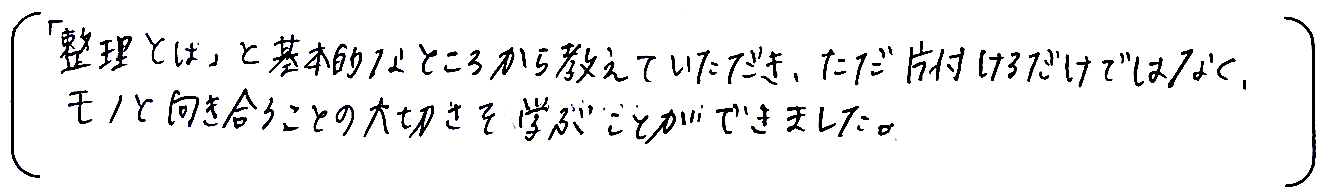 「整理とは」と基本的なところから教えていただき、ただ片付けるだけではなく、
モノと向き合うことの大切さを学ぶことができました。